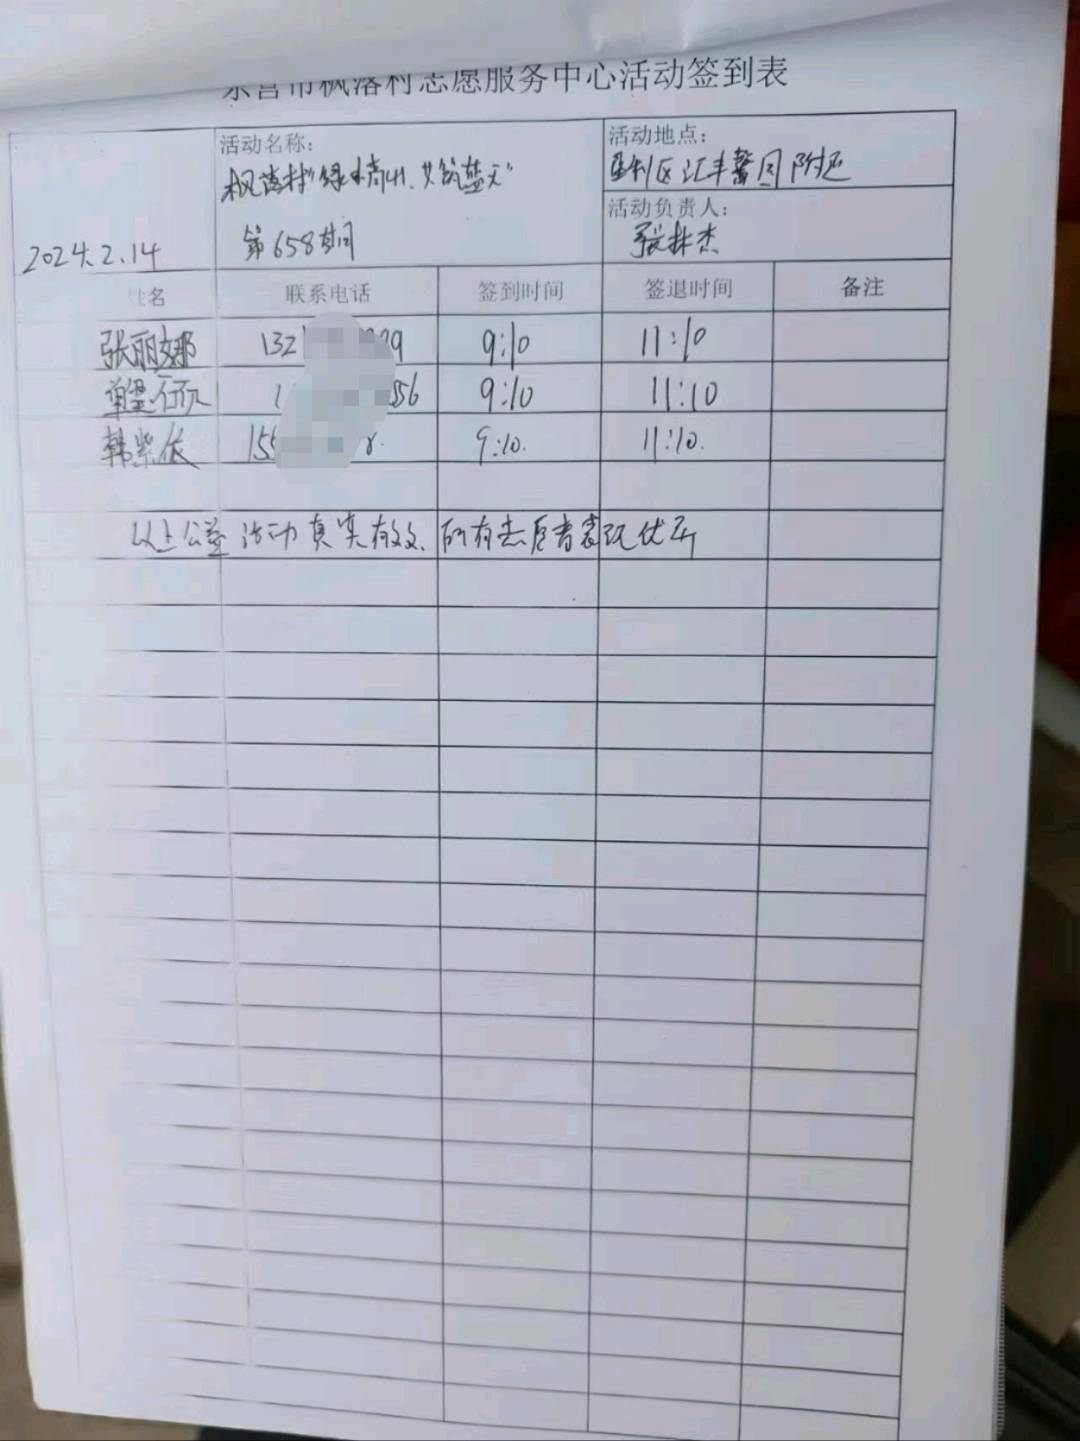 东营市枫落村志愿服务中心活动签到表
活动名称：
枫落村"绿水青山、共筑蓝天"
第658期
活动地点：
垦利区汇丰馨园附近
活动负责人：
张林杰
2024.2.14
姓名 联系电话 签到时间 签退时间 备注
张丽娜 132 99 9:10 11:10
1 356 9:10 11:10
韩紫依 155 8. 9:10. 11:10.
以上公益活动真实有效、所有志愿者表现优秀